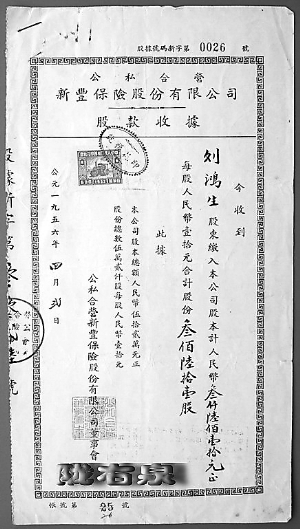 股據號碼新字第 0026 號
公私合營
新豐保險股份有限公司
股款收據
今收到
劉鴻生 股東繳入本公司股本計人民幣叁仟陸佰壹拾元正
每股人民幣壹拾元合計股份叁佰陸拾壹股
此據
本公司股本總額人民幣伍拾貳萬元正
股份總數伍萬貳仟股每股人民幣壹拾元
公私合營新豐保險股份有限公司董事會
公元一九五六年四月 日
帳號第 25 號